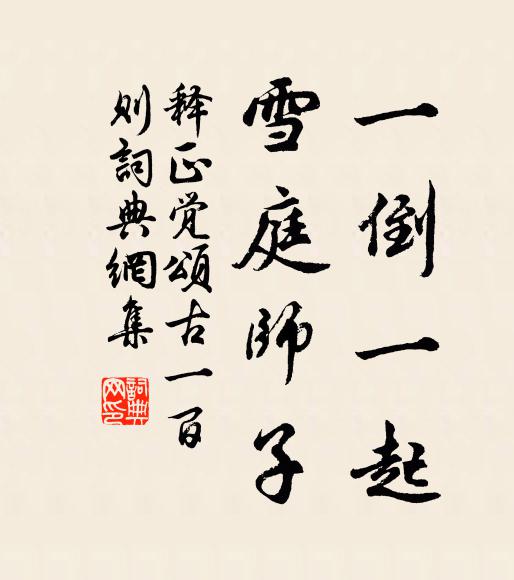 一倒一起
雪庭師子
释正觉頌古一百
则詞典網集
詞典
网印